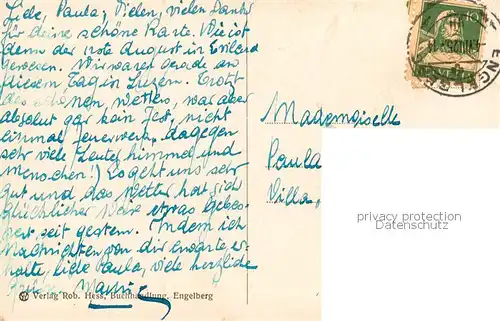 Liebe, Paula, Vielen, vielen Dank
für deine schöne Karte. Wie ist
denn der 1ste August in
gewesen. Wir waren gerade an
diesem, Tag in Luzern. Trotz
des schönen, Wetters, war aber
absolut gar kein Fest, nicht
einmal Feuerwerk, dagegen
sehr viele Leute (Himmel und
Menschen!) Es geht uns sehr
gut und das Wetter hat sich
glücklicher Weise etwas gebes-
sert, seit gestern. Indem ich
Nachrichten von dir erwarte, er-
halte, liebe Paula, viele herzliche
Mademoiselle
Paula
Villa,
privacy protection
Datenschutz
Verlag Rob. Hess, Buchhandlung, Engelberg
HELVETIA